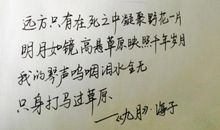 远方只有在死亡中凝聚野花一片
明月如镜高悬草原映照千年岁月
我的琴声呜咽泪水全无
只身打马过草原
——《九月》海子